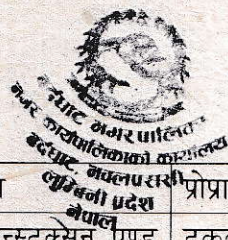 बर्दघाट नगरपालिका
नगर कार्यपालिकाको कार्यालय
बर्दघाट, नवलपरासी
लुम्बिनी प्रदेश
नेपाल
प्रोप्रा
न्स्ट्रक्सन एण्ड